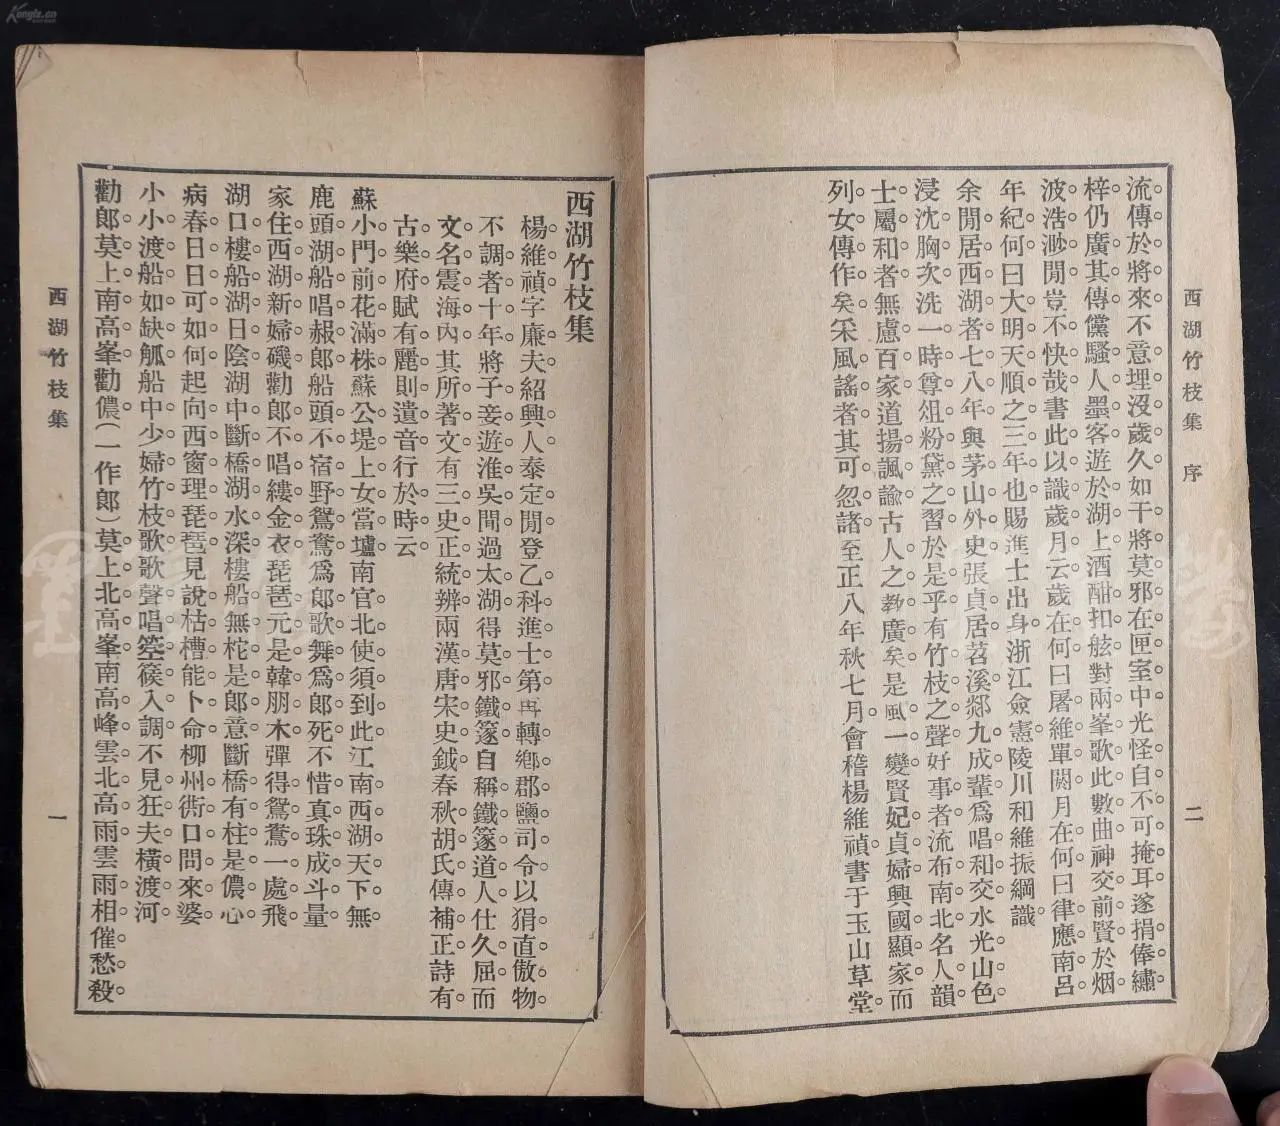 Kongfz.cn
西湖竹枝集 序 二
流傳於將來。不意埋沒歲久。如干將莫邪在匣室中。光怪自不可掩耳。遂捐俸繡
梓。仍廣其傳。儻騷人墨客。遊於湖上。酒酣扣舷。對兩峯歌此數曲。神交前賢於烟
波浩渺間。豈不快哉。書此以識歲月云。歲在何。曰屠維單閼。月在何。曰律應南呂。
年紀何。曰大明天順之三年也。賜進士出身浙江僉憲陵川和維振綱識。
余閒居西湖者七八年。與茅山外史張貞居。苕溪郯九成輩。爲唱和交。水光山色。
浸沈胸次。洗一時尊俎粉黛之習。於是乎有竹枝之聲。好事者流布南北。名人韻
士屬和者無慮百家。道揚諷諭。古人之敎廣矣。是風一變。賢妃貞婦。興國顯家。而
列女傳作矣。采風謠者。其可忽諸。至正八年秋七月。會稽楊維禎書于玉山草堂。
西湖竹枝集
楊維禎字廉夫。紹興人。泰定間登乙科進士第。再轉鄉郡鹽司令。以狷直傲物。
不調者十年。將子妾遊淮吳間。過太湖得莫邪鐵篴。自稱鐵篴道人。仕久屈而
文名震海內。其所著文有三史正統辨。兩漢唐宋史鉞。春秋胡氏傳補正。詩有
古樂府。賦有麗則遺音。行於時云。
蘇小門前花滿株。蘇公堤上女當壚。南官北使須到此。江南西湖天下無。
鹿頭湖船唱赧郎。船頭不宿野鴛鴦。爲郎歌舞爲郎死。不惜真珠成斗量。
家住西湖新婦磯。勸郎不唱縷金衣。琵琶元是韓朋木。彈得鴛鴦一處飛。
湖口樓船湖日陰。湖中斷橋湖水深。樓船無柁是郎意。斷橋有柱是儂心。
病春日日可如何。起向西窗理琵琶。見說枯槽能卜命。柳州衖口問來婆。
小小渡船如缺瓢。船中少婦竹枝歌。歌聲唱箜篌入調。不見狂夫橫渡河。
勸郎莫上南高峯。勸儂(一作郎)莫上北高峯。南高峰雲北高雨。雲雨相催愁殺
西湖竹枝集 一